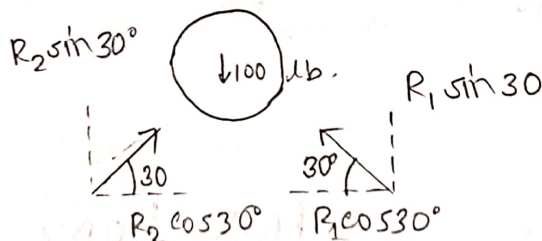 R₂ sin 30°
↓100 lb.
R₁ sin 30
30
30°
R₂ cos 30°
R₁ cos 30°